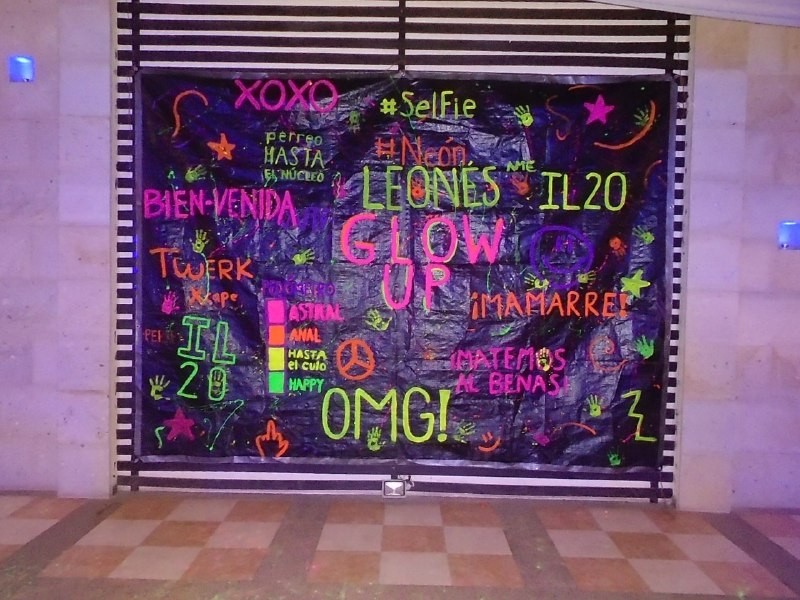 XOXO
#SelFie
perreo
HASTA
EL NÚCLEO
#Neón
LEONÉS
AME
IL20
BIEN-VENIDA
GLOW
UP
TWERK
Xcape
¡MAMARRE!
ASTRAL
ANAL
HASTA
el culo
HAPPY
IL
20
¡MATEMOS
AL BENAS!
OMG!